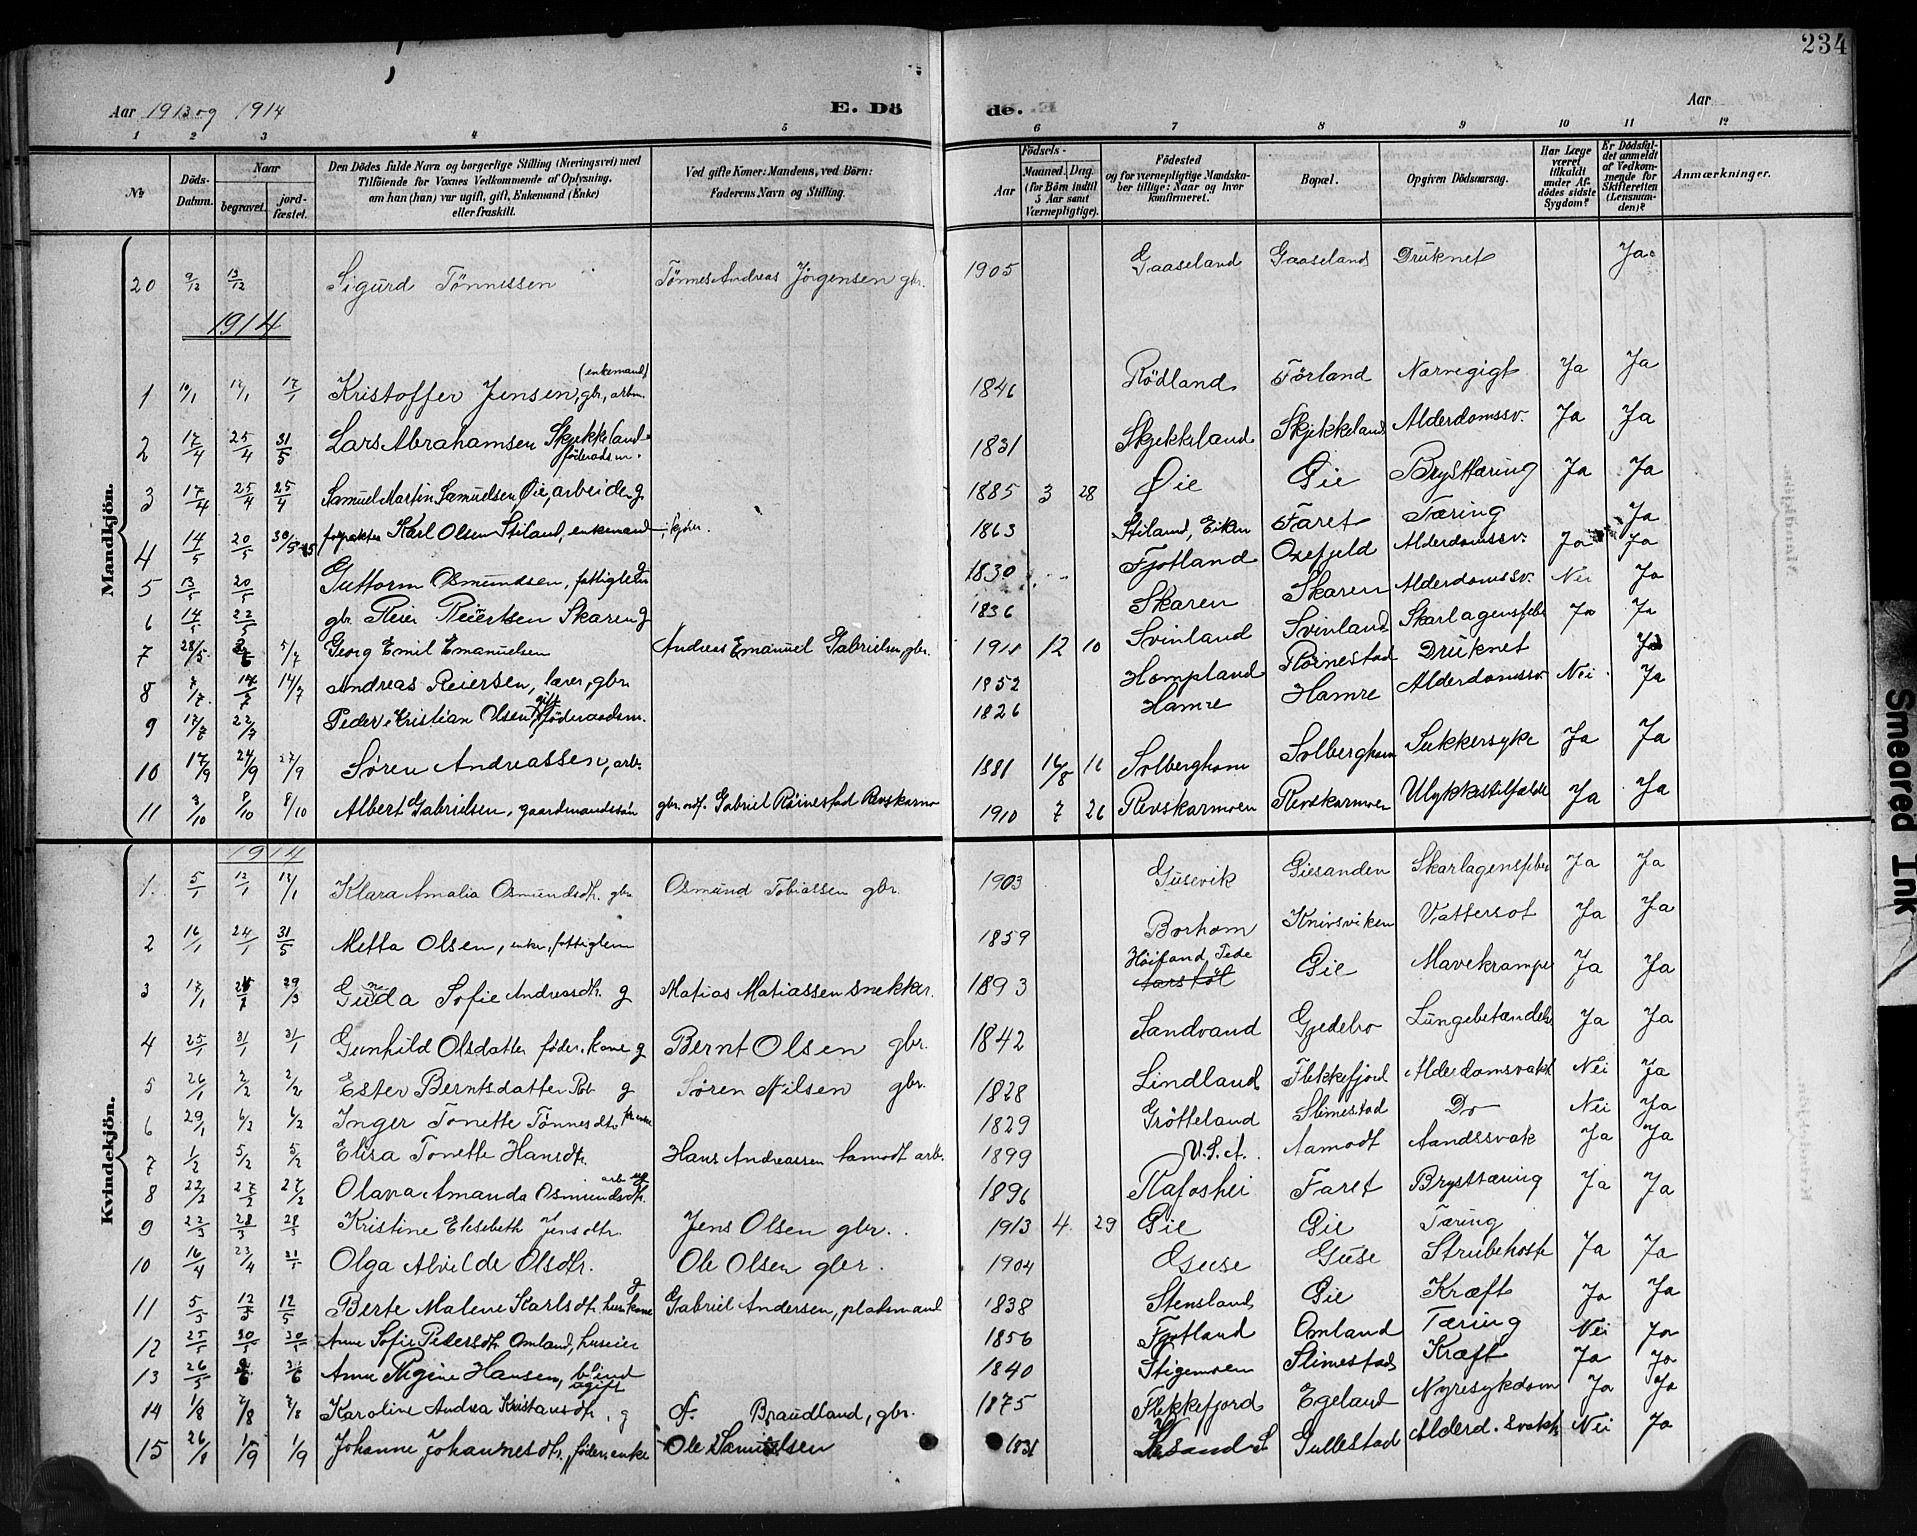 234
Aar 1913 og 1914 E. Dö de. Aar
1 2 3 4 5 6 7 8 9 10 11 12
No Döds-Datum. Naar begravet. jord-fæstet. Den Dödes fulde Navn og borgerlige Stilling (Næringsvei) med Tilföiende for Voxnes Vedkommende af Oplysning, om han (hun) var ugift, gift, Enkemand (Enke) eller fraskilt. Ved gifte Koner: Mandens, ved Börn: Faderens Navn og Stilling. Födsels- Aar Maaned. Dag. (for Börn indtil 5 Aar samt Værnepligtige). Födested og for værnepligtige Mandskaber tillige: Naar og hvor konfirmeret. Bopæl. Opgiven Dödsaarsag. Har Læge været tilkaldt under Afdödes sidste Sygdom? Er Dödsfaldet anmeldt af Vedkommende for Skifteretten (Lensmanden)? Anmærkninger.
Mandkjön.
20 9/12 13/12 Sigurd Tönnessen Tönnes Andreas Jörgensen gbr. 1905 Gaaseland Gaaseland Druknet Ja
1914
1 10/1 17/1 17/1 Kristoffer Jensen, gbr., arbm. (enkemand) 1846 Rödland Förland Nervegigt Ja Ja
2 17/4 25/4 31/5 Lars Abrahamsen Skjekkeland föderaadsm. 1831 Skjekkeland Skjekkeland Alderdomssv. Ja Ja
3 17/4 25/4 25/4 Samuel Martin Samuelsen Øie, arbeider g. 1885 3 28 Øie Øie Brysttæring Ja Ja
4 14/5 20/5 30/5 15 forpakter Karl Olsen Stiland, enkemand 1863 Stiland, Eiken Faret Tæring Ja
5 13/5 20/5 Guttorm Osmundsen, fattiglem 1830 Fjotland Oxefjeld Alderdomssv. Ja Ja
6 14/5 22/5 gbr. Reier Reiertsen Skaren g 1836 Skaren Skaren Alderdomssv. Nei Ja
7 28/5 5/7 Georg Emil Emanuelsen Andreas Emanuel Gabrielsen, gbr. 1911 12 10 Svinland Svinland Skarlagensfeber Ja Ja
8 7/7 14/7 14/7 Andreas Reiersen, lærer, gbr. 1852 Hompland Röinestad Druknet Ja
9 17/7 22/7 Peder Kristian Olsen gift föderaadsm. 1826 Hamre Hamre Alderdomssv. Nei Ja
10 17/9 24/9 27/9 Sören Andreassen, arb. 1881 16/8 11 Solberghom Solberghom Sukkersyke Ja Ja
11 3/10 8/10 8/10 Albert Gabrielsen, gaardmandssön gbr. ordf. Gabriel Röinestad Revskarmo 1910 7 26 Revskarmoen Revskarmoen Ulykkestilfælde Ja Ja
Kvindekjön.
1914
1. 5/1 12/1 12/1 Klara Amalia Osmundsdtr. gbr Osmund Tobiassen gbr. 1903 Gusevik Giesanden Skarlagensfeber Ja Ja
2 16/1 24/1 31/5 Metta Olsen, enke, fattiglem 1859 Borhom Knivsviken Vattersot Ja Ja
3 17/1 29/3 Guda Sofie Andreasdtr. g Matias Matiassen snekker. 1893 Höiland, Fede Øie Mavekrampe Ja Ja
4 25/1 31/1 31/1 Gunhild Olsdatter föder. kone g Bernt Olsen gbr. 1842 Sandvand Gjedebro Lungebetændelse Ja Ja
5 26/1 2/2 2/2 Ester Berntsdatter g Sören Nilsen gbr. 1828 Lindland Flekkefjord Alderdomsvakh Nei Ja
6 29/1 6/2 6/2 Inger Tonette Tönnesdtr. 1829 Grötteland Slimestad Do Nei Ja
7 1/2 5/2 5/2 Elisa Tonette Hansdtr. Hans Andreassen Aamodt arb. 1899 U.S.A. Aamodt Aandssvak Ja Ja
8 22/2 27/2 27/2 Olava Amanda Osmundsdtr. arb. ug 1896 Rafoshei Faret Brysttæring Ja Ja
9 22/3 28/3 28/3 Kristine Elisebeth Jensdtr. Jens Olsen gbr. 1913 4 29 Øie Øie Tæring
10 16/4 23/4 Olga Alvilde Olsdtr. Ole Olsen gbr. 1904 Guse Guse Strubehoste Ja Ja
11 5/5 12/5 12/5 Berte Malene Karlsdtr. huskone g Gabriel Andersen, platsmand 1838 Stensland Øie Kræft Ja Ja
12 25/5 30/5 30/5 Anne Sofie Pedersdtr. Omland, huseier 1856 Fjotland Omland Tæring Nei Ja
13 26/5 Anne Regine Hansen, blind ugift 1840 Stigemoen Slimestad Kræft Ja Ja
14 1/8 7/8 7/8 Karoline Andrea Kristansdtr., g A. Braudland, gbr. 1875 Flekkefjord Egeland Nyresykdom Ja Ja
15 26/8 1/9 1/9 Johanne Johannesdtr., föder. enke Ole Samuelsen 1831 Gullestad Alderd. svakh. Nei Ja
Smeared Ink